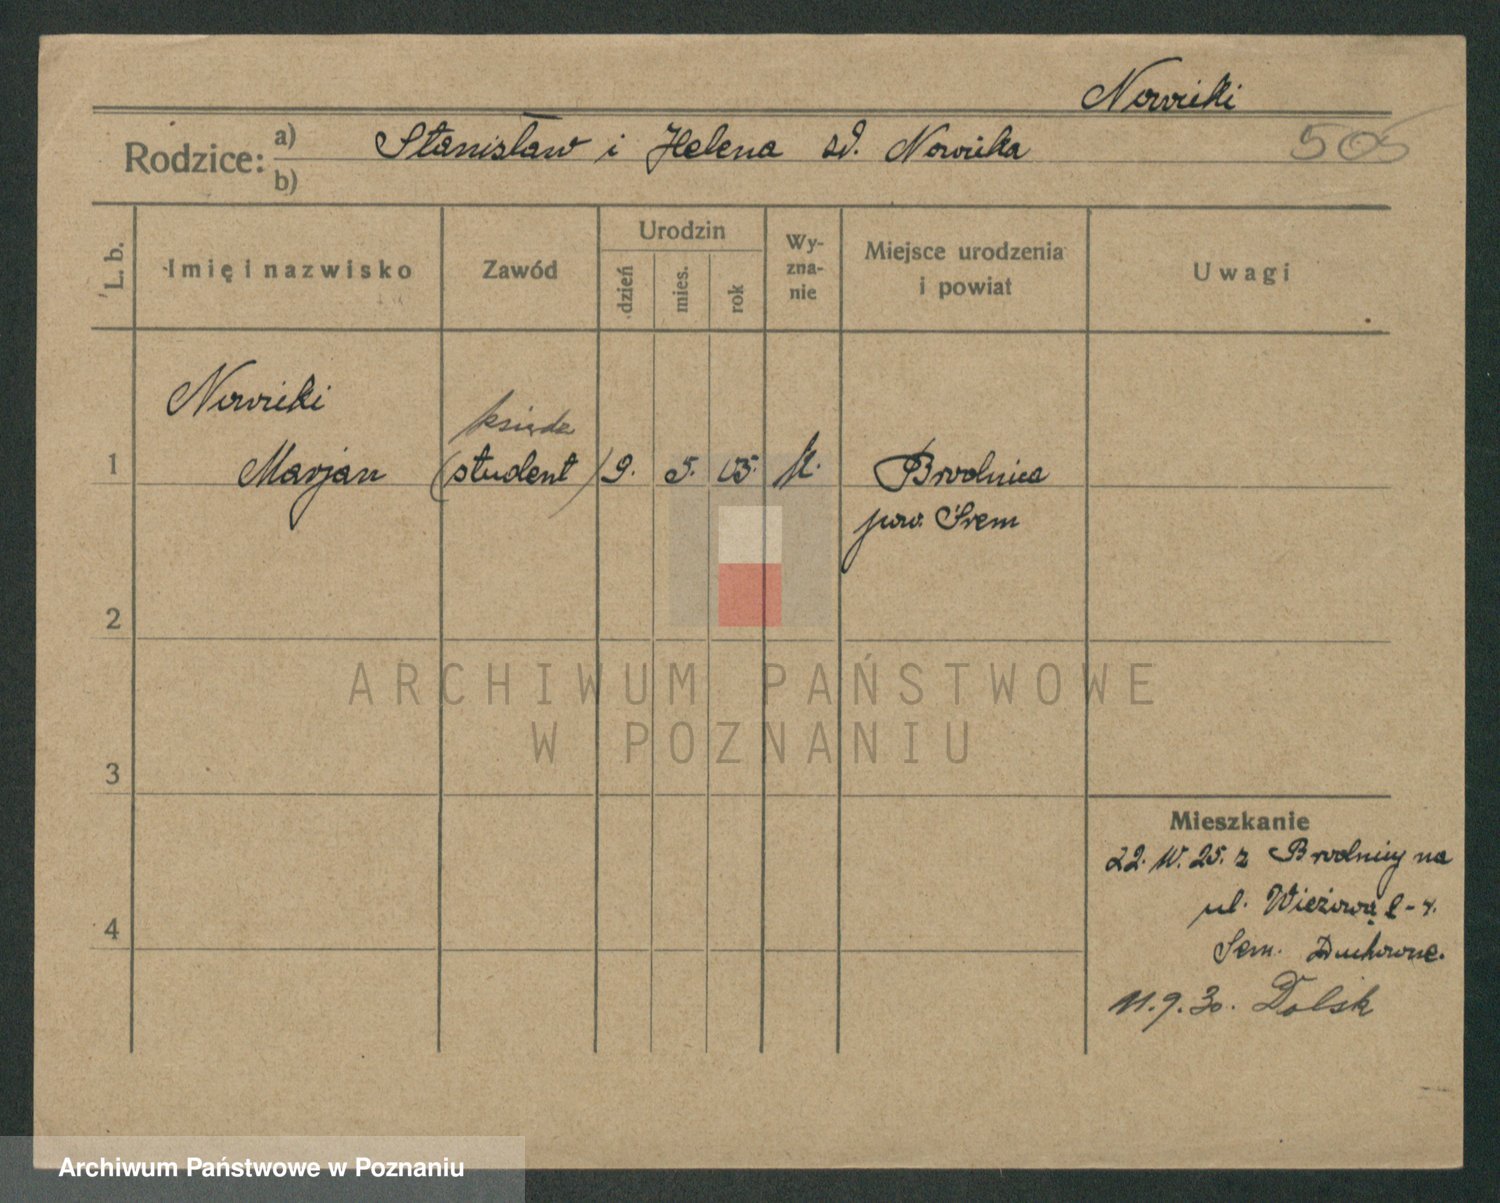 Nowicki
Rodzice: a) Stanisław i Helena zd. Nowicka 505
b)
L. b. Imię i nazwisko Zawód Urodzin Wyznanie Miejsce urodzenia i powiat Uwagi
dzień mies. rok
Nowicki
ksiądz
1 Marjan (student) 9. 5. 05. k. Brodnica
pow. Śrem
2
ARCHIWUM PAŃSTWOWE
W POZNANIU
3
Mieszkanie
22. 25. z Brodnicy na
ul. Wieżową 2-4.
4 Sem. Duchowne.
11.9.30. Dolsk
Archiwum Państwowe w Poznaniu